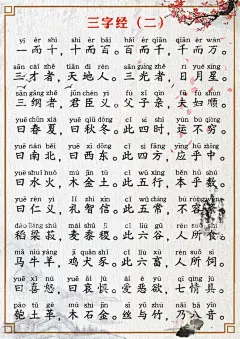 三字经（二）
yī ér shí shí ér bǎi bǎi ér qiān qiān ér wàn
一而十，十而百。百而千，千而万。
sān cái zhě tiān dì rén sān guāng zhě rì yuè xīng
三才者，天地人。三光者，日月星。
sān gāng zhě jūn chén yì fù zǐ qīn fū fù shùn
三纲者，君臣义。父子亲，夫妇顺。
yuē chūn xià yuē qiū dōng cǐ sì shí yùn bù qióng
曰春夏，曰秋冬。此四时，运不穷。
yuē nán běi yuē xī dōng cǐ sì fāng yìng hū zhōng
曰南北，曰西东。此四方，应乎中。
yuē shuǐ huǒ mù jīn tǔ cǐ wǔ xíng běn hū shù
曰水火，木金土。此五行，本乎数。
yuē rén yì lǐ zhì xìn cǐ wǔ cháng bù róng
曰仁义，礼智信。此五常，不容
dào liáng shū mài shǔ jì cǐ liù gǔ rén suǒ shí
稻粱菽，麦黍稷。此六谷，人所食。
mǎ niú yáng jī quǎn shǐ cǐ liù chù rén suǒ sì
马牛羊，鸡犬豕。此六畜，人所饲。
yuē xǐ nù yuē āi jù ài è yù qī qíng jù
曰喜怒，曰哀惧。爱恶欲，七情具。
páo tǔ gé mù shí jīn sī yǔ zhú nǎi bā yīn
匏土革，木石金。丝与竹，乃八音。